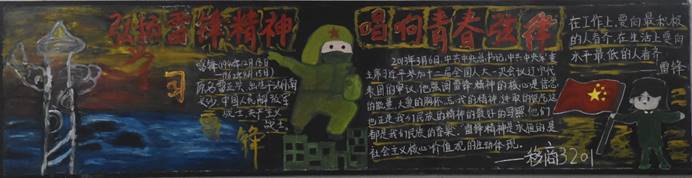 弘扬雷锋精神 唱响青春旋律
学
习
雷
锋
雷锋(1940年12月18日
-1962年8月15日)
原名雷正兴,出生于湖南
长沙,中国人民解放军
战士,共产主义
战士
2013年3月6日,中共中央总书记,中共中央军委
主席习近平参加十二届全国人大一次会议辽宁代
表团的审议,他强调雷锋精神的核心是信念
的能量、大爱的胸怀、忘我的精神、进取的锐气,这
也正是我们民族精神的最好的写照,他们
都是我们民族的脊梁。雷锋精神是永恒的,是
社会主义核心价值观的生动体现。
——移商3201
在工作上,要向最积极
的人看齐,在生活上要向
水平最低的人看齐
雷锋